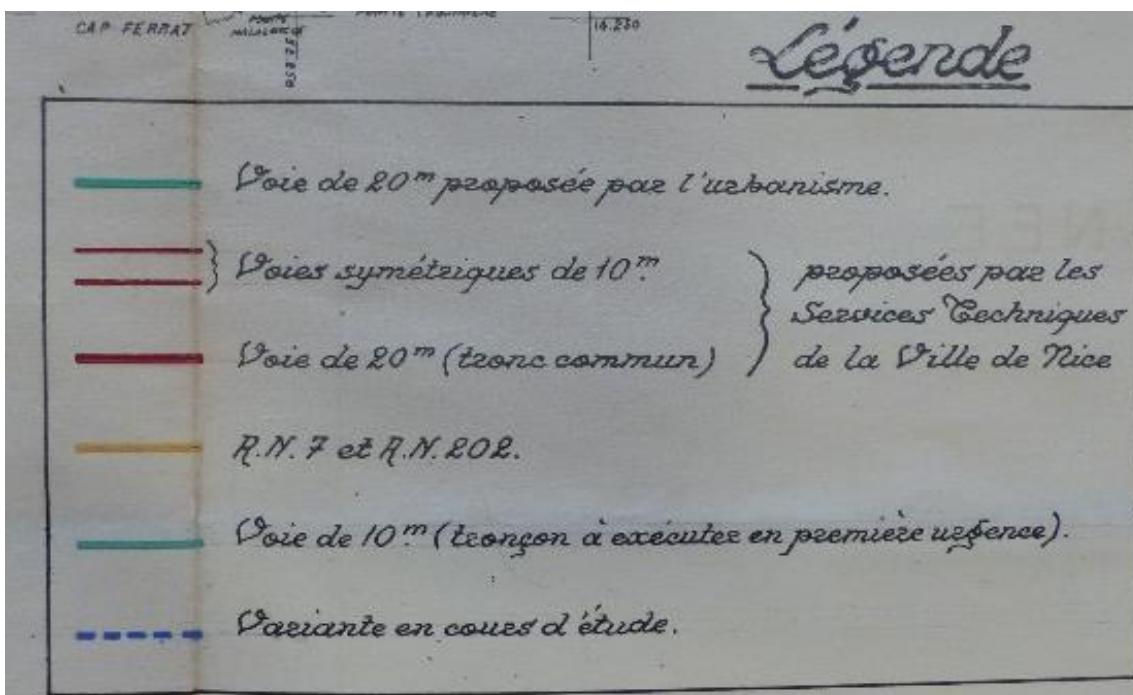 CAP FERRAT
14.250
Légende
Voie de 20m proposée par l'urbanisme.
Voies symétriques de 10m
proposées par les
Services Techniques
Voie de 20m (tronc commun)
de la Ville de Nice
R.N. 7 et R.N. 202.
Voie de 10m (tronçon à exécuter en première urgence).
Variante en cours d'étude.